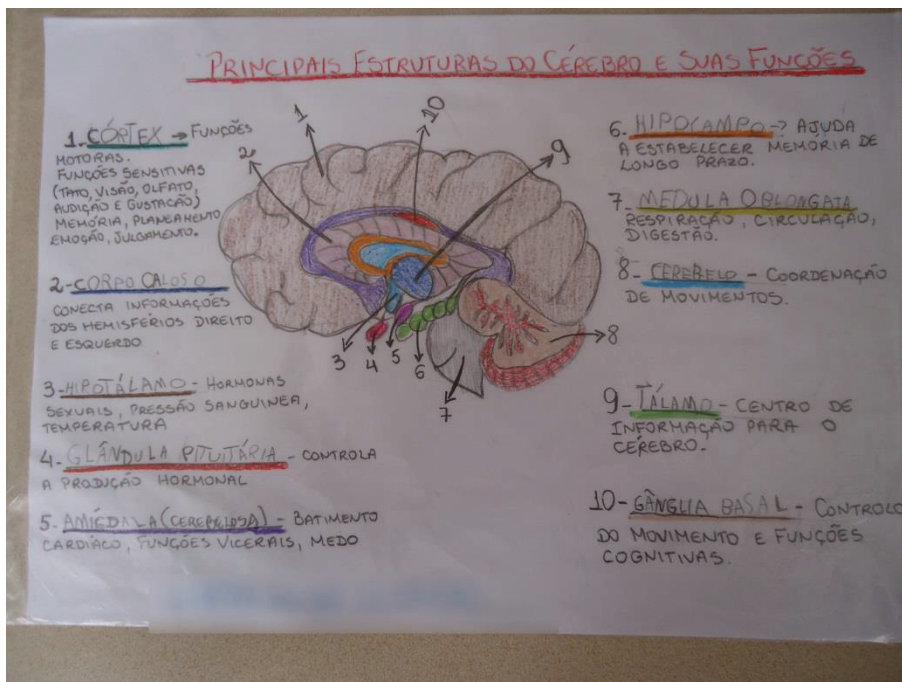 PRINCIPAIS ESTRUTURAS DO CÉREBRO E SUAS FUNÇÕES
1. CÓRTEX → FUNÇÕES
MOTORAS.
FUNÇÕES SENSITIVAS
(TATO, VISÃO, OLFATO,
AUDIÇÃO E GUSTAÇÃO)
MEMÓRIA, PLANEAMENTO
EMOÇÃO, JULGAMENTO.
2-CORPO CALOSO
CONECTA INFORMAÇÕES
DOS HEMISFÉRIOS DIREITO
E ESQUERDO
3-HIPOTÁLAMO - HORMONAS
SEXUAIS, PRESSÃO SANGUINEA,
TEMPERATURA
4. GLÂNDULA PITUITÁRIA - CONTROLA
A PRODUÇÃO HORMONAL
5. AMIGDALA (CEREBELOSA) - BATIMENTO
CARDÍACO, FUNÇÕES VICERAIS, MEDO
1
2
10
9
3
4
5
6
7
8
6. HIPOCAMPO → AJUDA
A ESTABELECER MEMÓRIA DE
LONGO PRAZO.
7. MEDULA OBLONGATA
RESPIRAÇÃO, CIRCULAÇÃO,
DIGESTÃO.
8- CEREBELO - COORDENAÇÃO
DE MOVIMENTOS.
9-TÁLAMO - CENTRO DE
INFORMAÇÃO PARA O
CÉREBRO.
10- GÂNGLIA BASAL - CONTROLO
DO MOVIMENTO E FUNÇÕES
COGNITIVAS.